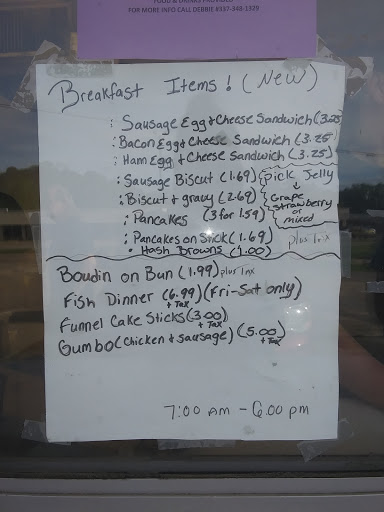 FOOD & DRINKS PROVIDED
FOR MORE INFO CALL DEBBIE @337-348-1329
Breakfast Items! (New)
: Sausage Egg & Cheese Sandwich (3.25)
: Bacon Egg & Cheese Sandwich (3.25)
: Ham Egg & Cheese Sandwich (3.25)
: Sausage Biscut (1.69)
: Biscut & gravy (2.69)
: Pancakes (3 for 1.59)
: Pancakes on Stick (1.69)
• Hash Browns (1.00)
Pick Jelly
Grape
strawberry
or
mixed
plus Tax
Boudin on Bun (1.99) plus Tax
Fish Dinner (6.99) (Fri-Sat only)
+ Tax
Funnel Cake Sticks (3.00)
+ Tax
Gumbo (Chicken & Sausage) (5.00)
+ Tax
7:00 AM - 6:00 pm